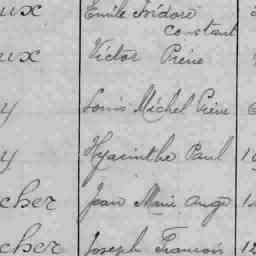 ux Emile Isidore
constant
ux Victor Pierre
y Louis Michel Pierre
y Hyacinthe Paul 1
cher Jean Marie Ange 1
cher Joseph Francois 12